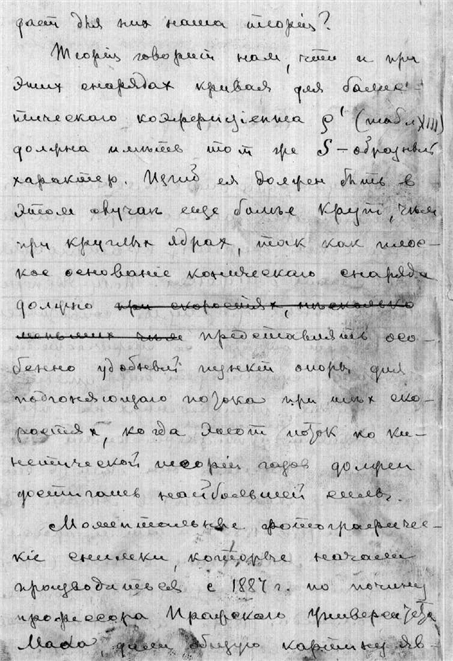 дает для них наша теорiя?
Теорiя говорит нам, что и при
этих снарядах кривая для балис-
тическаго коэффицiента ρ' (табл XIII)
должна иметь тот же S-образный
характер. Изгиб ея должен быть в
этом случае еще более крут, чем
при круглых ядрах, так как плос-
кое основанiе коническаго снаряда
должно при скоростях, несколько
меньших чем представлять осо-
бенно удобный пункт опоры для
подгоняющаго потока при тех ско-
ростях, когда этот поток по ки-
нетической теорiи газов должен
достигать наибольшей силы.
Моментальные фотографичес-
кiе снимки, которые начали
производиться с 1887 г. по почину
профессора Пражского Университета
Маха, дали общую картину яв-